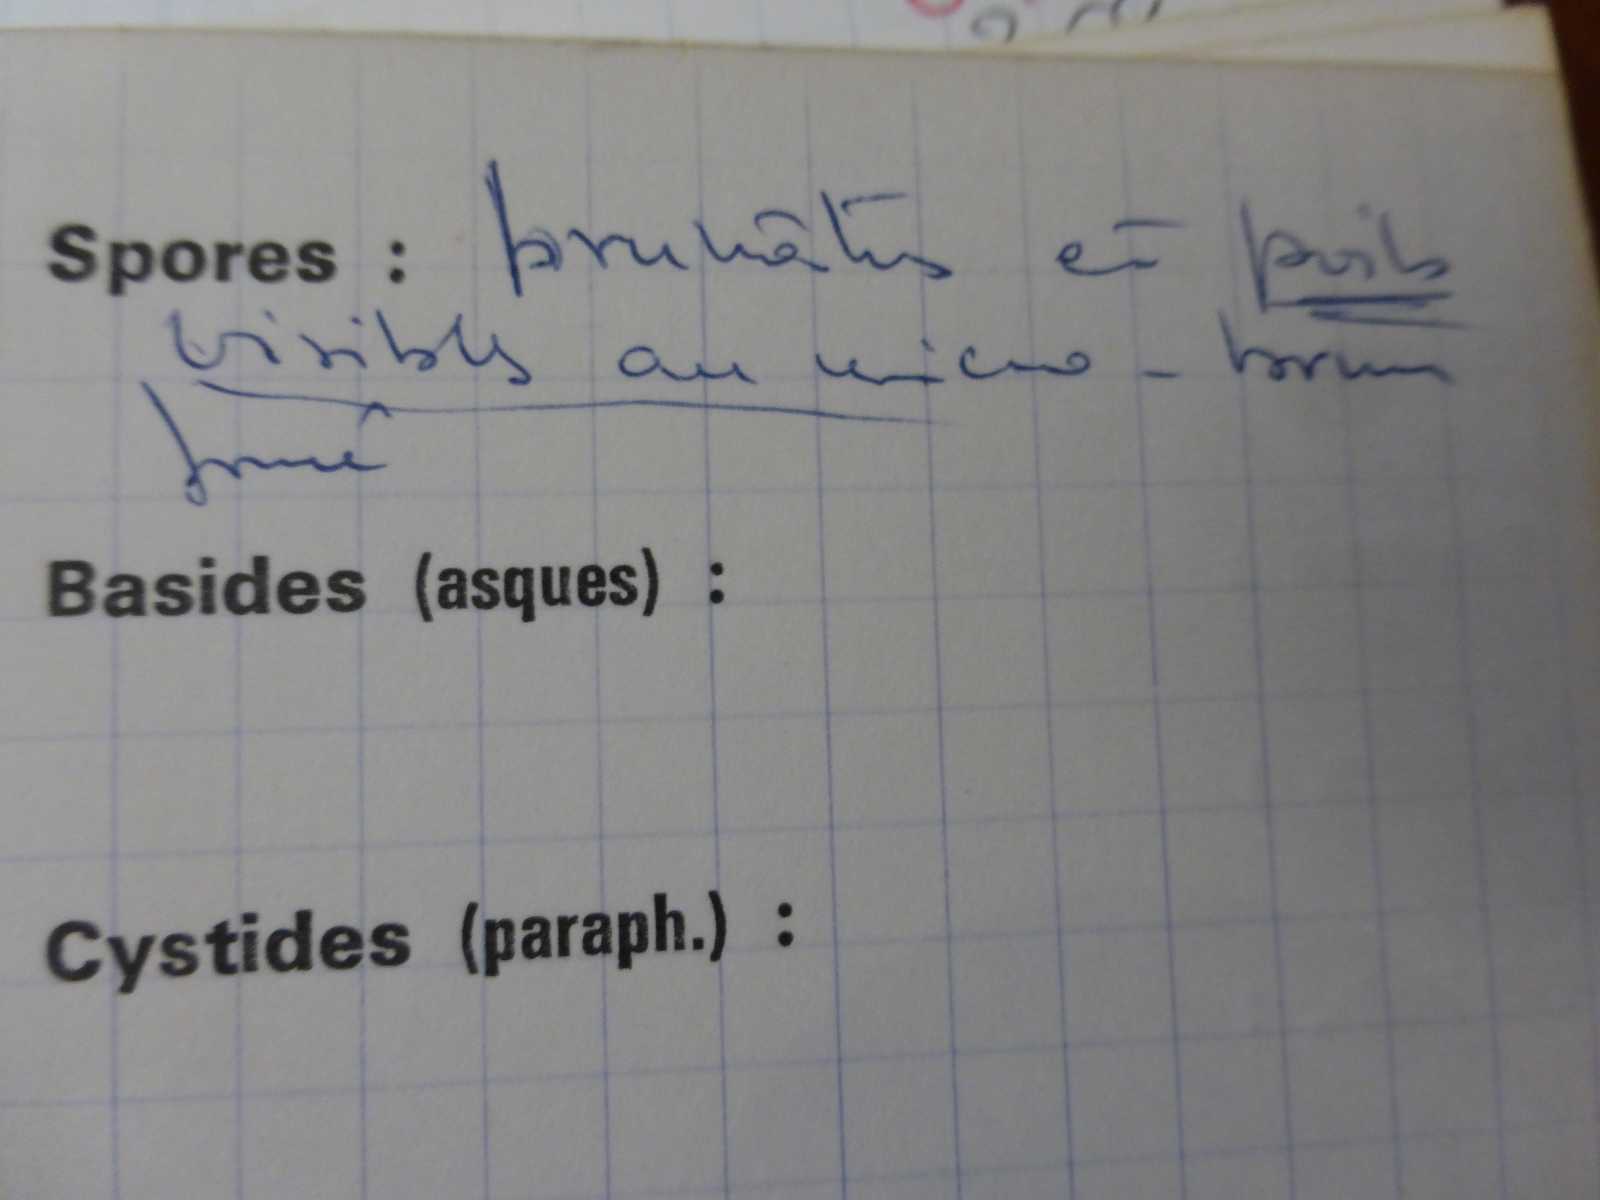 Spores : pruinâtus et poils
visibles au micro - brun
fumé
Basides (asques) :
Cystides (paraph.) :